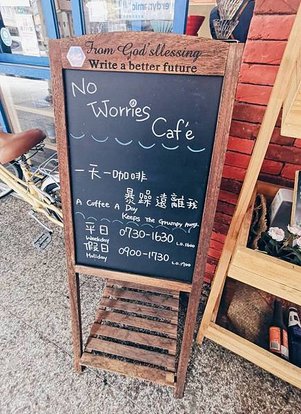 From God's Messing
Write a better future
No
Worries
Café
一天一咖啡
暴躁遠離我
A Coffee A Day
Keeps The Grumpy Away
平日 0730-1630 L.O. 1600
Weekday
假日 0900-1730 L.O. 1700
Holiday